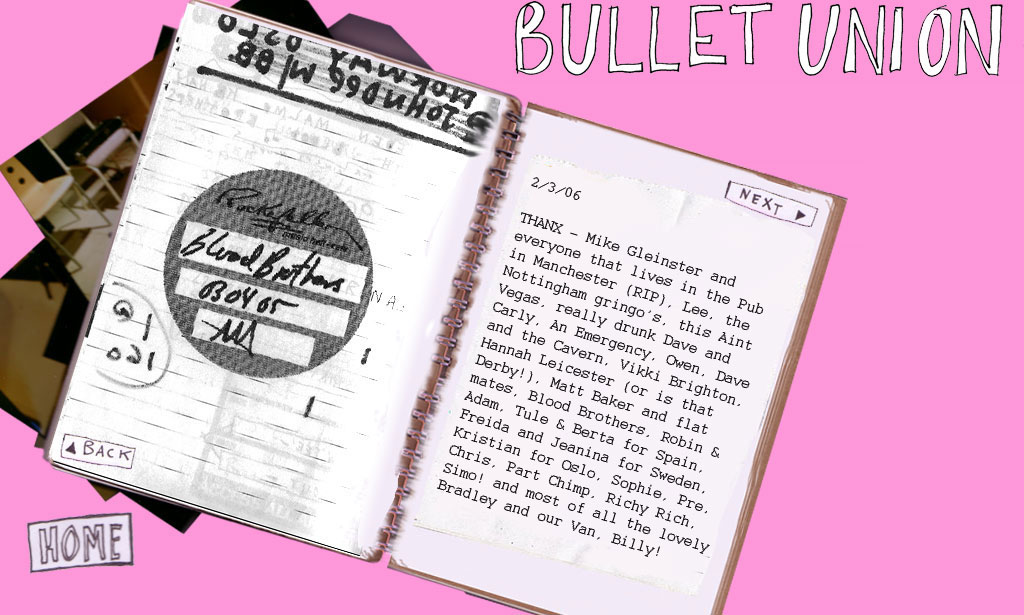 BULLET UNION
Blood Brothers
BACK
HOME
NEXT
2/3/06
THANX - Mike Gleinster and
everyone that lives in the Pub
in Manchester (RIP), Lee, the
Nottingham gringo's, this Aint
Vegas, really drunk Dave and
Carly, An Emergency, Owen, Dave
and the Cavern, Vikki Brighton,
Hannah Leicester (or is that
Derby!), Matt Baker and flat
mates, Blood Brothers, Robin &
Adam, Tule & Berta for Spain,
Freida and Jeanina for Sweden,
Kristian for Oslo, Sophie, Pre,
Chris, Part Chimp, Richy Rich,
Simo! and most of all the lovely
Bradley and our Van, Billy!